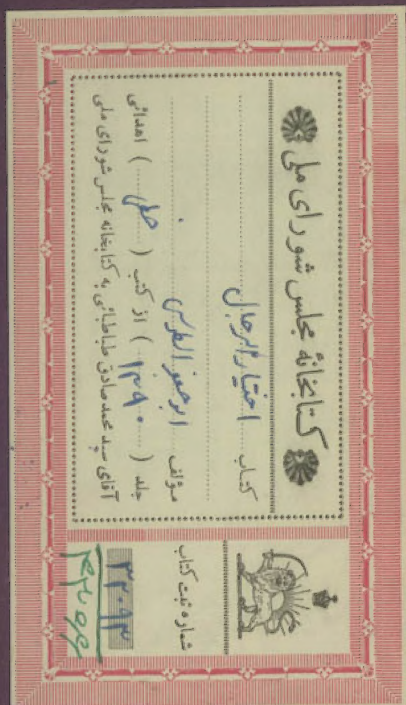 کتابخانهٔ مجلس شورای ملی
کتاب اختیار الرجال
مؤلف ابو جعفر الطوسی
جلد (۱۲۹۰) از کتب (خطی) اهدائی
آقای سید محمد صادق طباطبائی به کتابخانه مجلس شورای ملی
شماره ثبت کتاب
۳۲۰۹۳